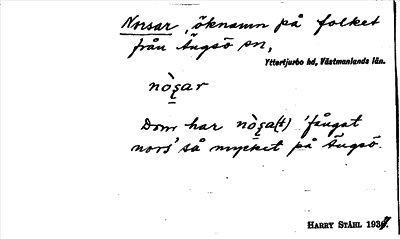 Norsar, öknamn på folket
från Ängsö sn,
Yttertjurbo hd, Västmanlands län.
nò̱ʂar
Dom har nò̱ʂa(t) 'fångat
nors' så mycket på Ängsö.
HARRY STÅHL 1937.